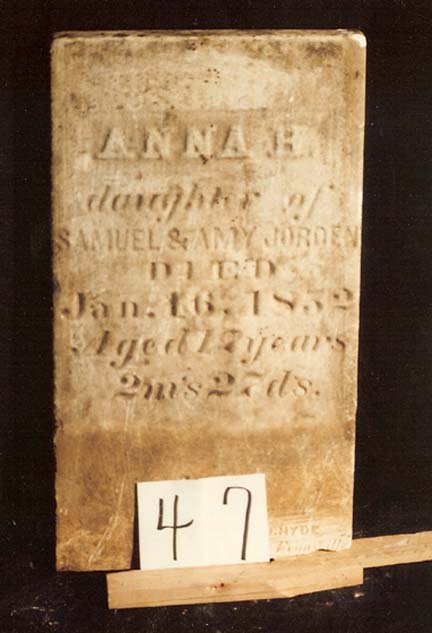 ANNA H.
daughter of
SAMUEL & AMY JORDEN
DIED
Jan. 16. 1852
Aged 17 years
2 m's 27 ds.
47
HYDE